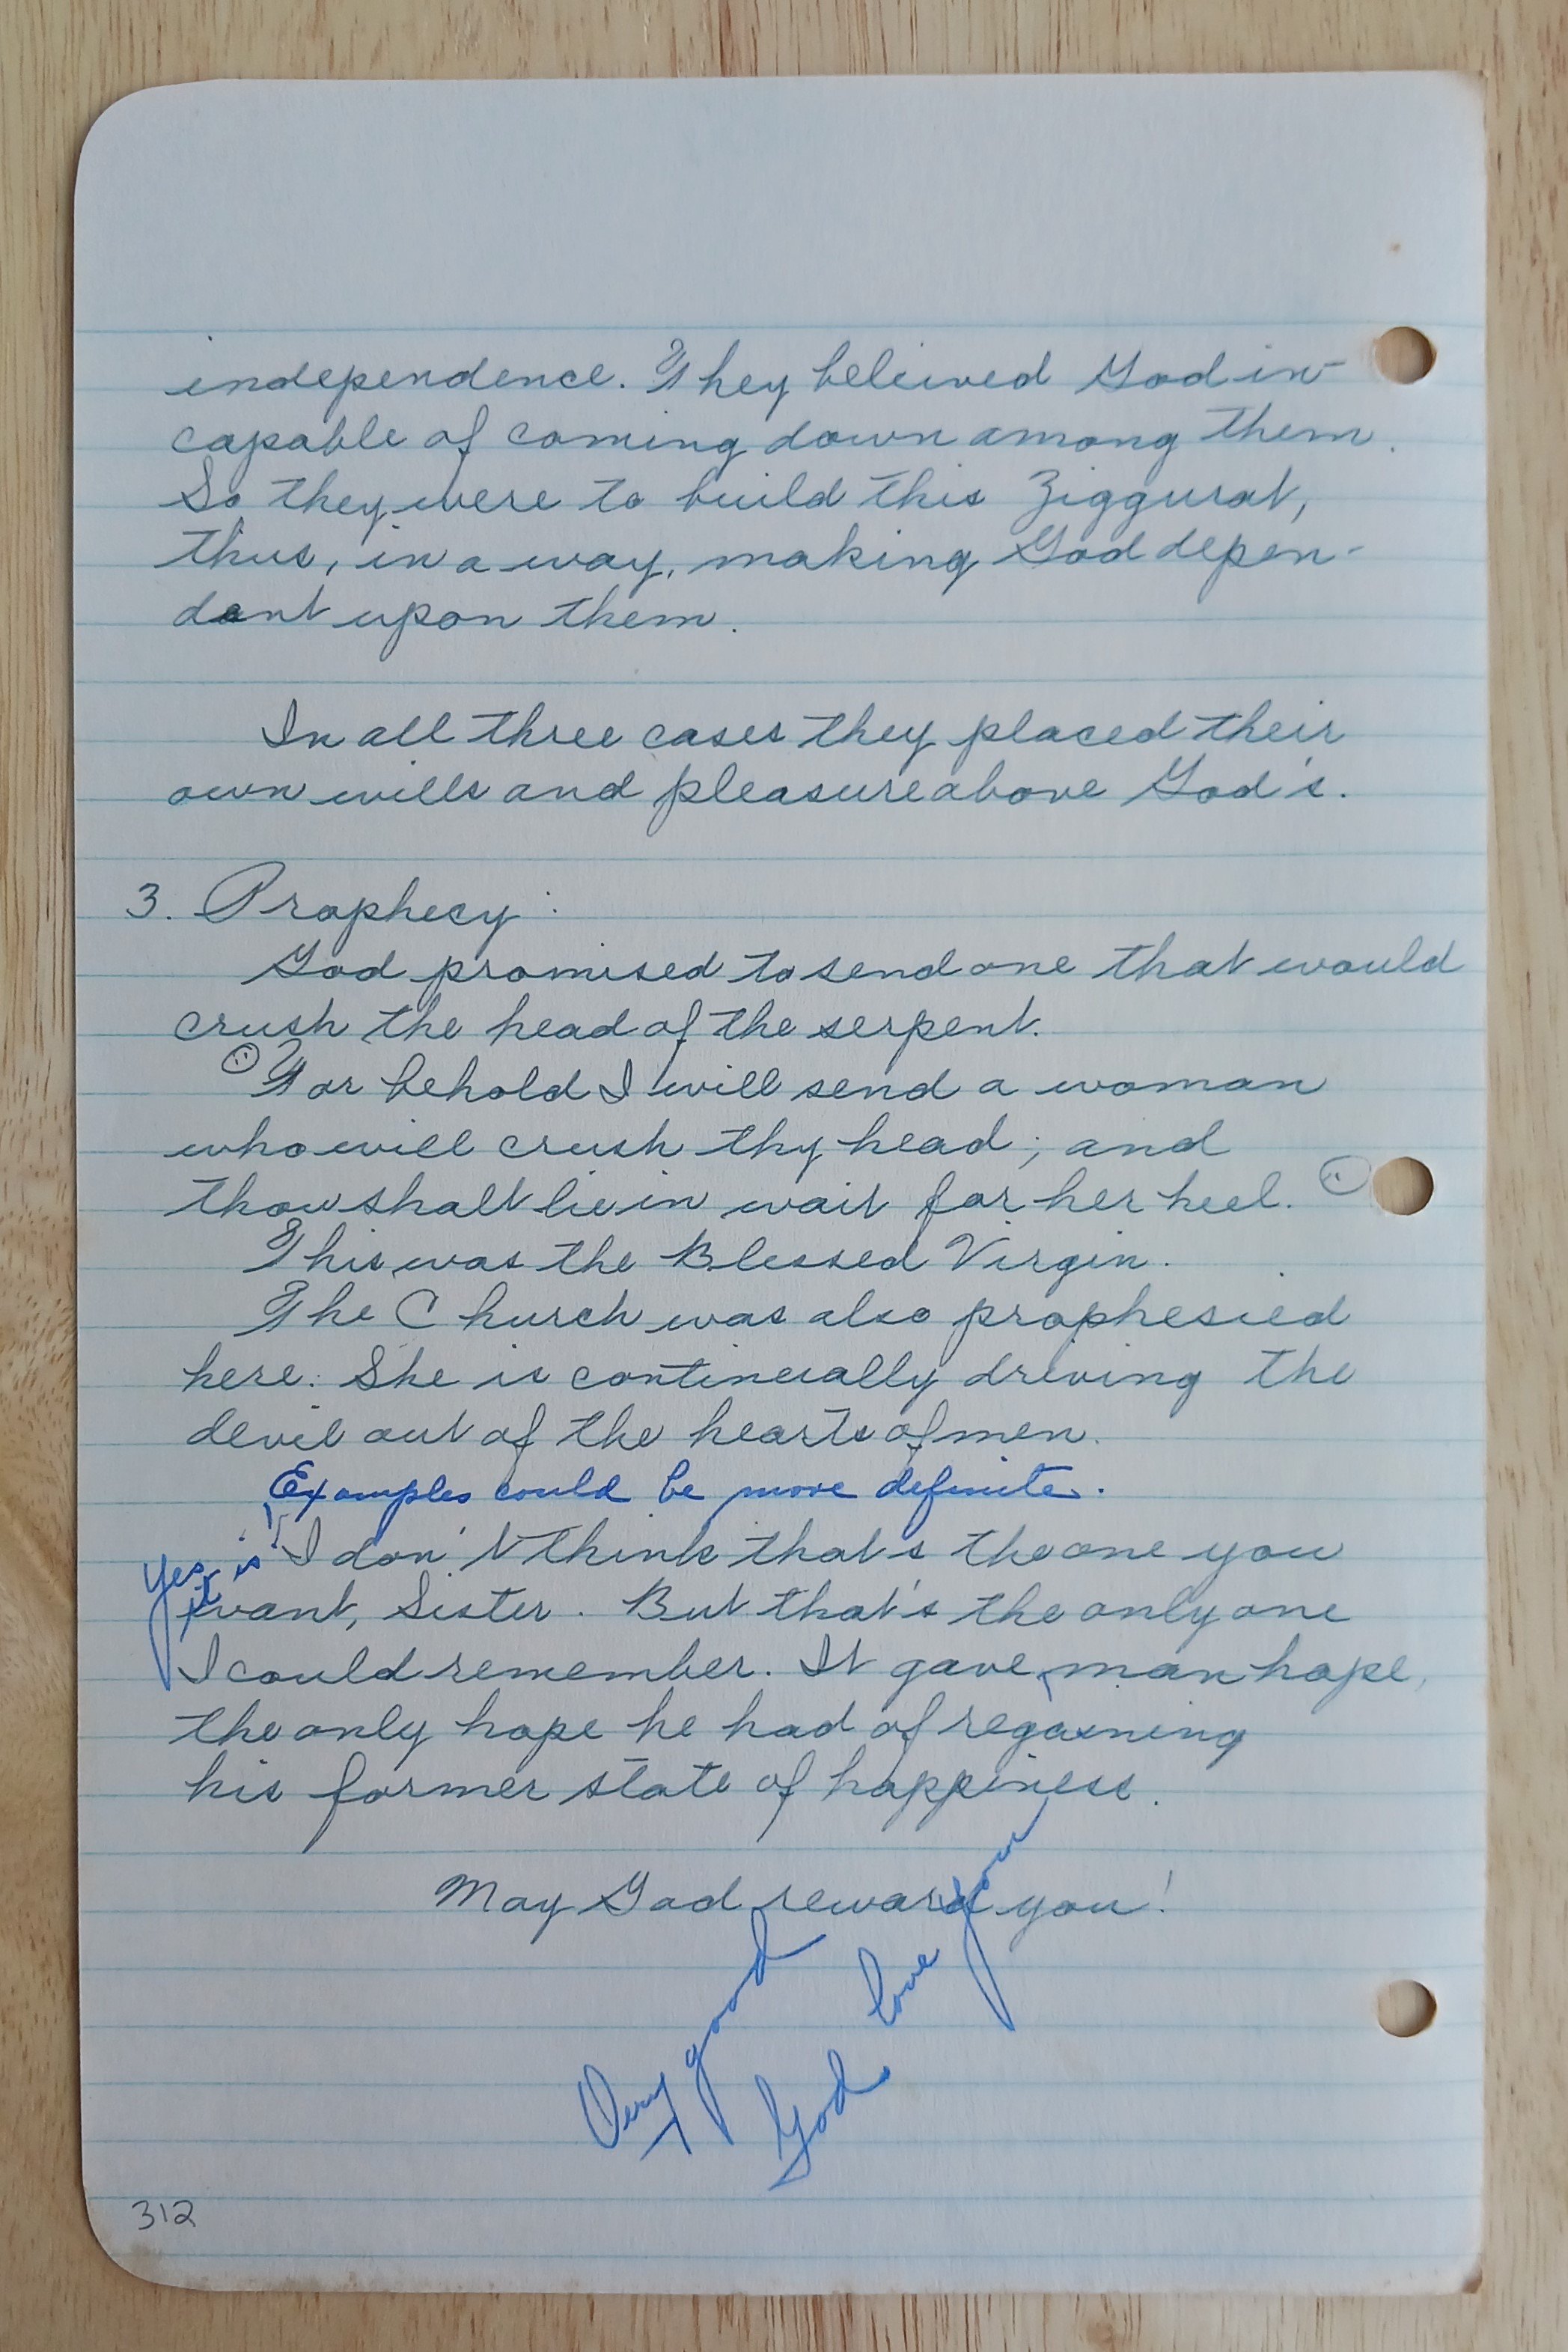 independence. They beleived God in-
capable of coming down among them.
So they were to build this Ziggurat,
thus, in a way, making God depen-
dent upon them.
In all three cases they placed their
own wills and pleasure above God's.
3. Prophecy:
God promised to send one that would
crush the head of the serpent.
For behold I will send a woman
who will crush thy head; and
thou shalt lie in wait for her heel.
This was the Blessed Virgin.
The Church was also prophesied
here. She is continually driving the
devil out of the hearts of men.
Examples could be more definite.
Yes it is!
I don't think that's the one you
want, Sister. But that's the only one
I could remember. It gave man hope,
the only hope he had of regaining
his former state of happiness.
May God reward you!
Very good
God love you
312